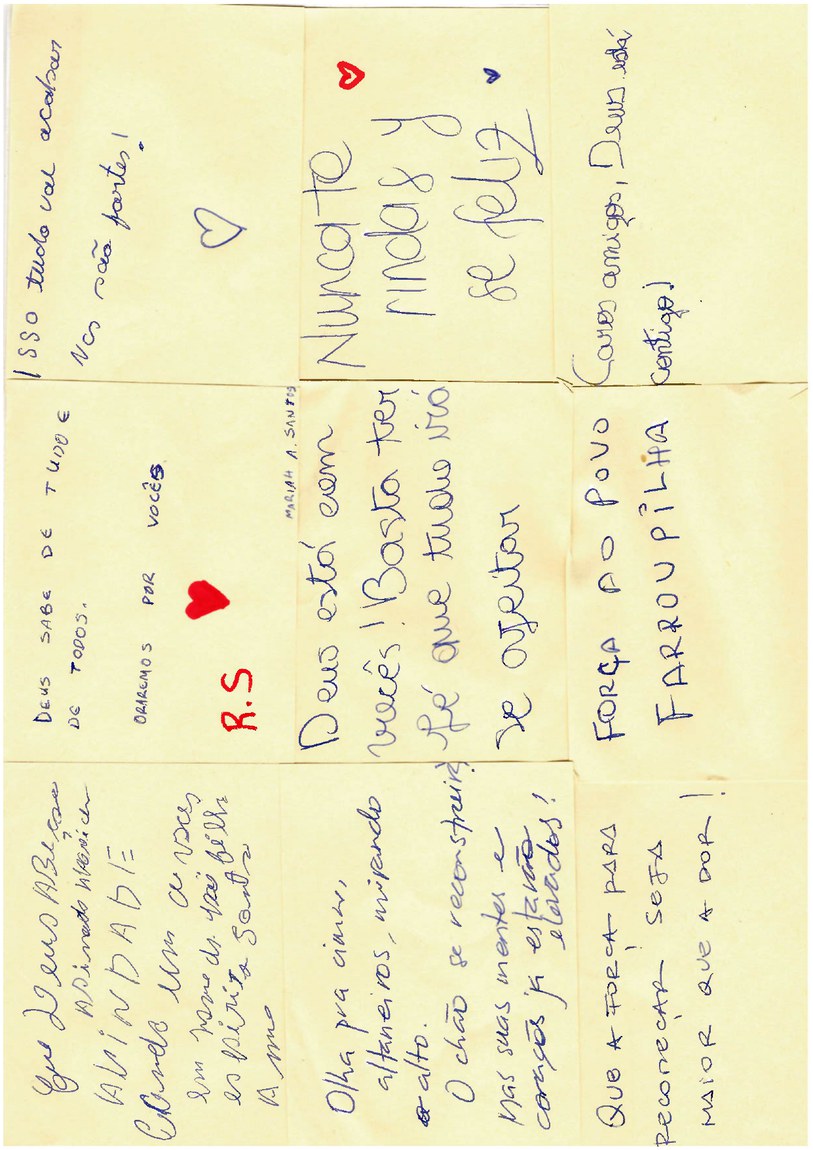 Que Deus ABeçoe
ABINDADE
em nome do pai filho
espírito Santo
DEUS SABE DE TUDO E
DE TODOS.
ORAREMOS POR VOCÊS
R.S
Isso tudo vai acabar
Vcs são fortes!
Olha pra cima,
altaneiros, mirando
o alto.
O chão se reconstruirá
Mas suas mentes e
corações já estarão
elevados!
MARIAH A. SANTOS
Deus está com
vocês! Basta ter
fé que tudo irá
se ajeitar
Nunca te
rindas y
se feliz
QUE A FORÇA PARA
RECOMEÇAR SEJA
MAIOR QUE A DOR!
FORÇA AO POVO
FARROUPILHA
Caros amigos, Deus está
contigo!